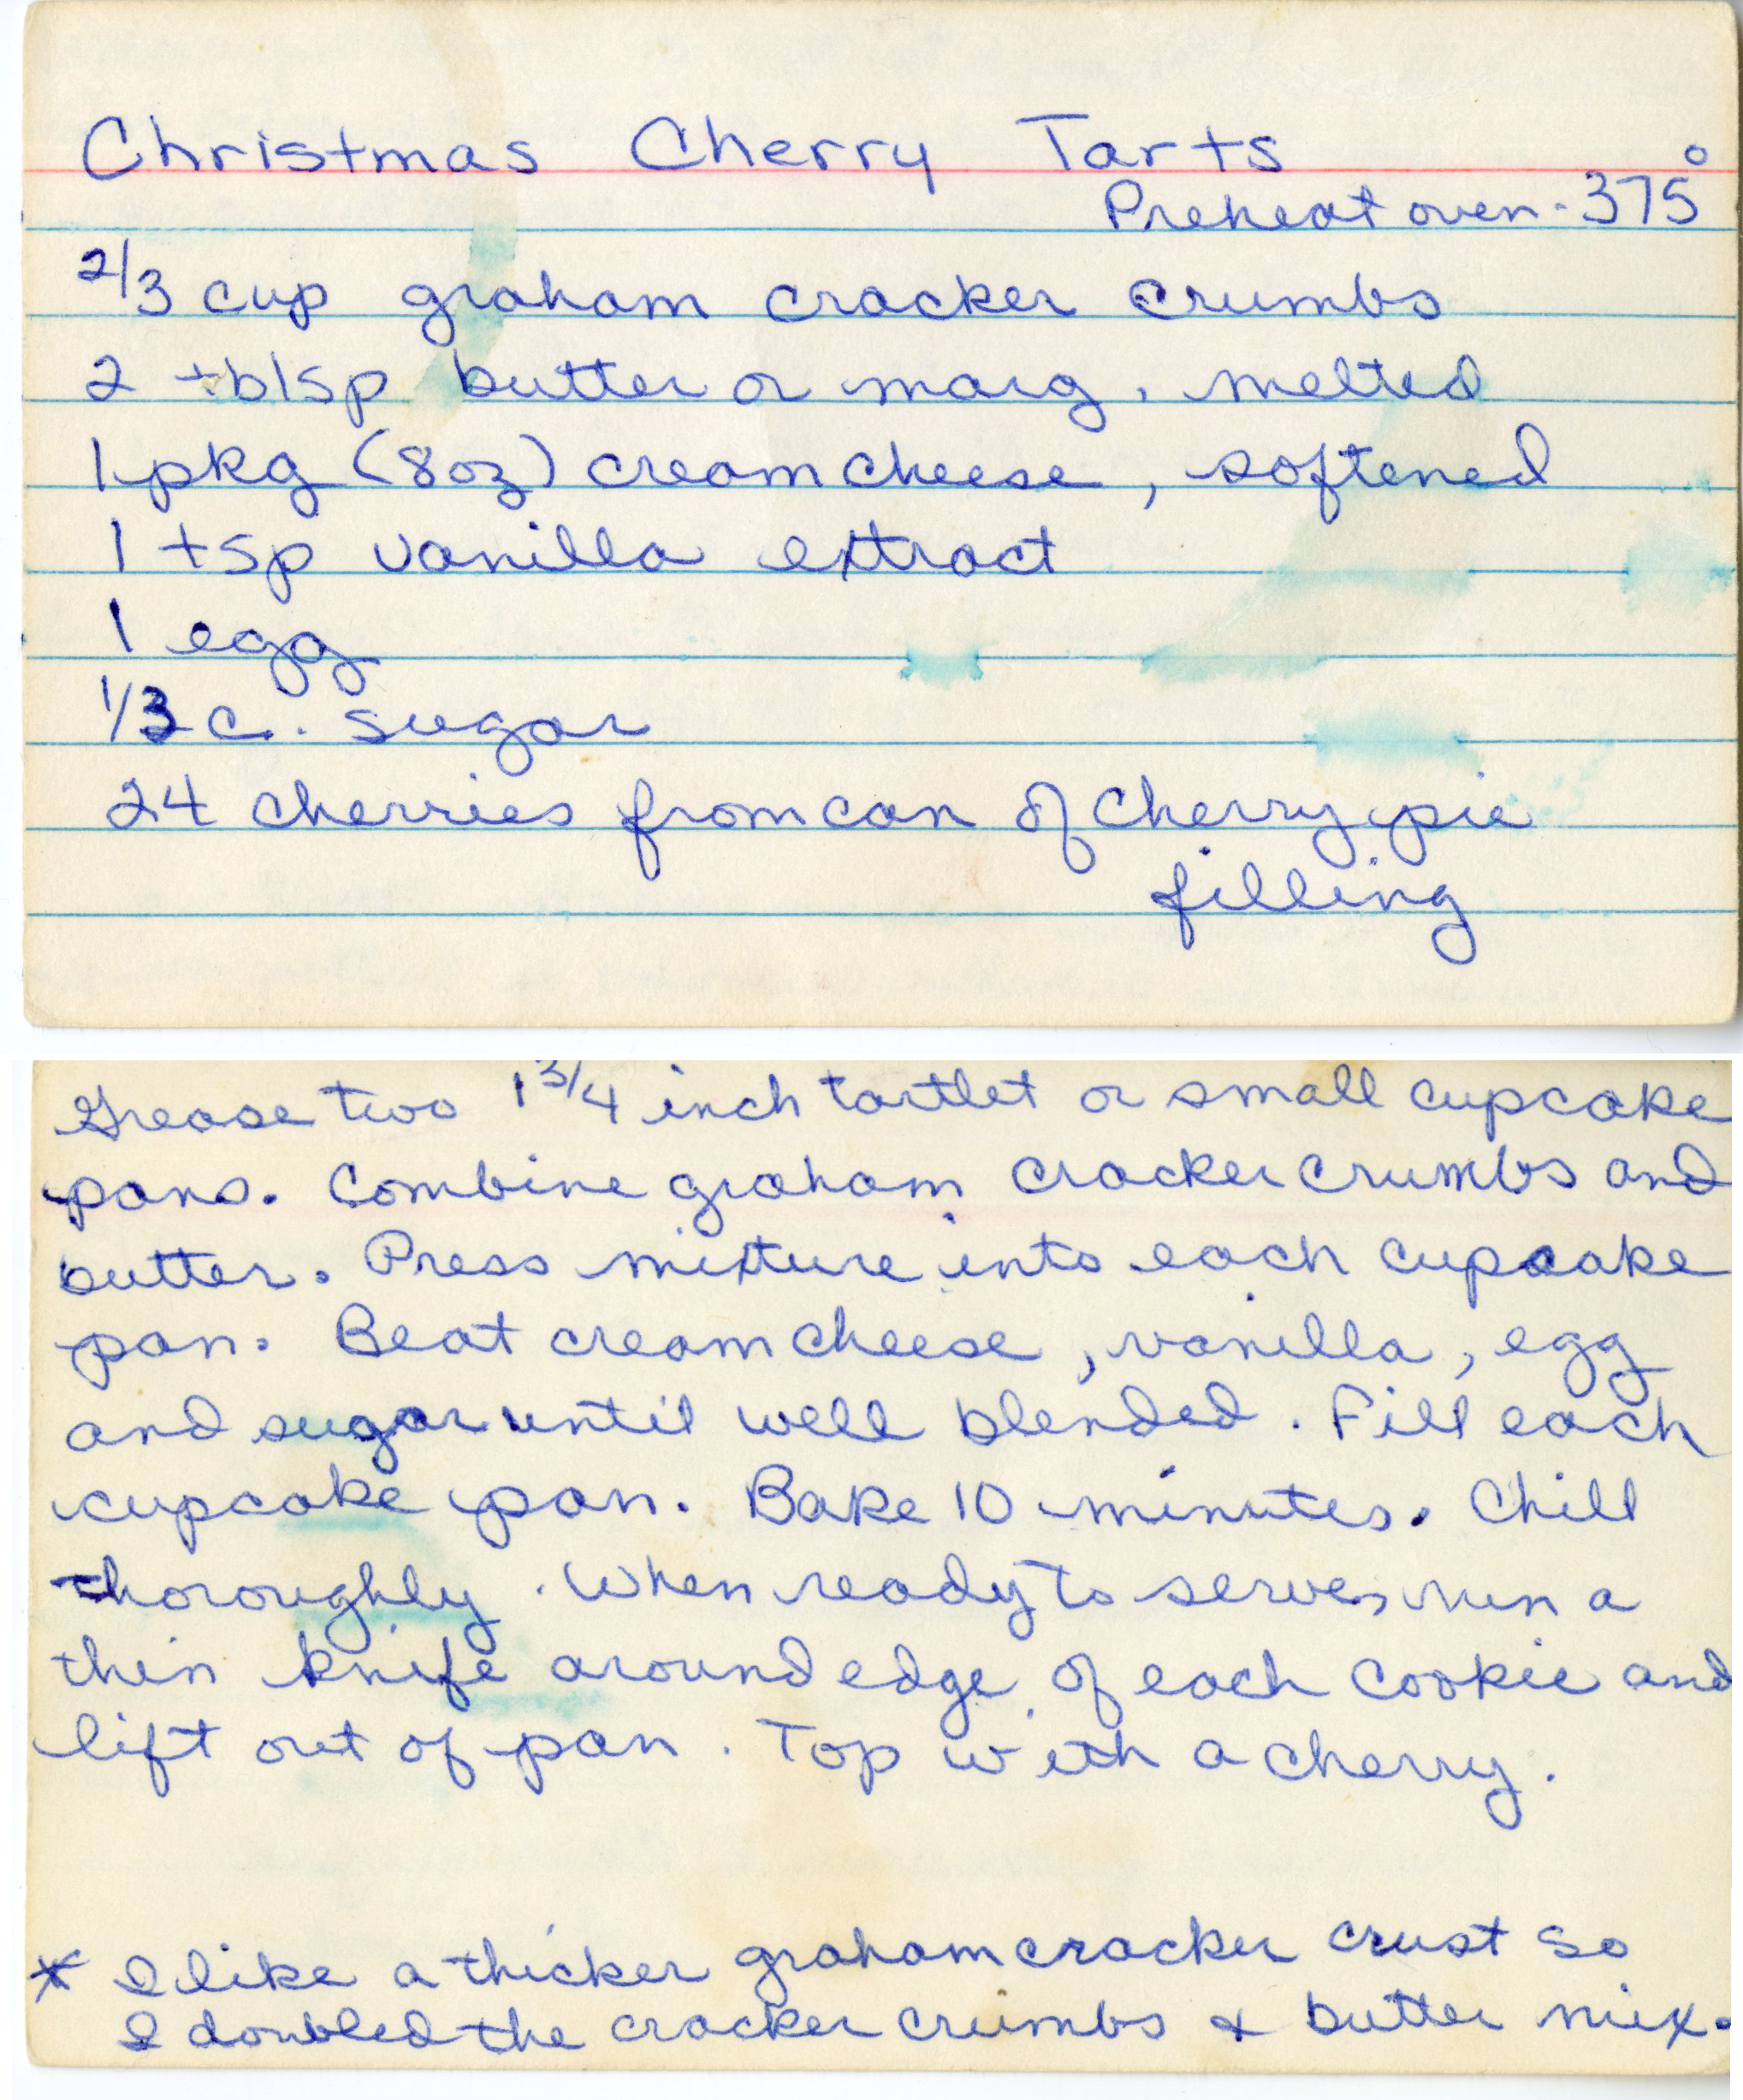 Christmas Cherry Tarts
Preheat oven - 375°
2/3 cup graham cracker crumbs
2 tblsp butter or marg, melted
1 pkg (8oz) cream cheese, softened
1 tsp vanilla extract
1 egg
1/3 c. sugar
24 cherries from can of cherry pie
filling
Grease two 1 3/4 inch tartlet or small cupcake
pans. Combine graham cracker crumbs and
butter. Press mixture into each cupcake
pan. Beat cream cheese, vanilla, egg
and sugar until well blended. Fill each
cupcake pan. Bake 10 minutes. Chill
thoroughly. When ready to serve, run a
thin knife around edge of each cookie and
lift out of pan. Top with a cherry.
* I like a thicker graham cracker crust so
I doubled the cracker crumbs & butter mix.